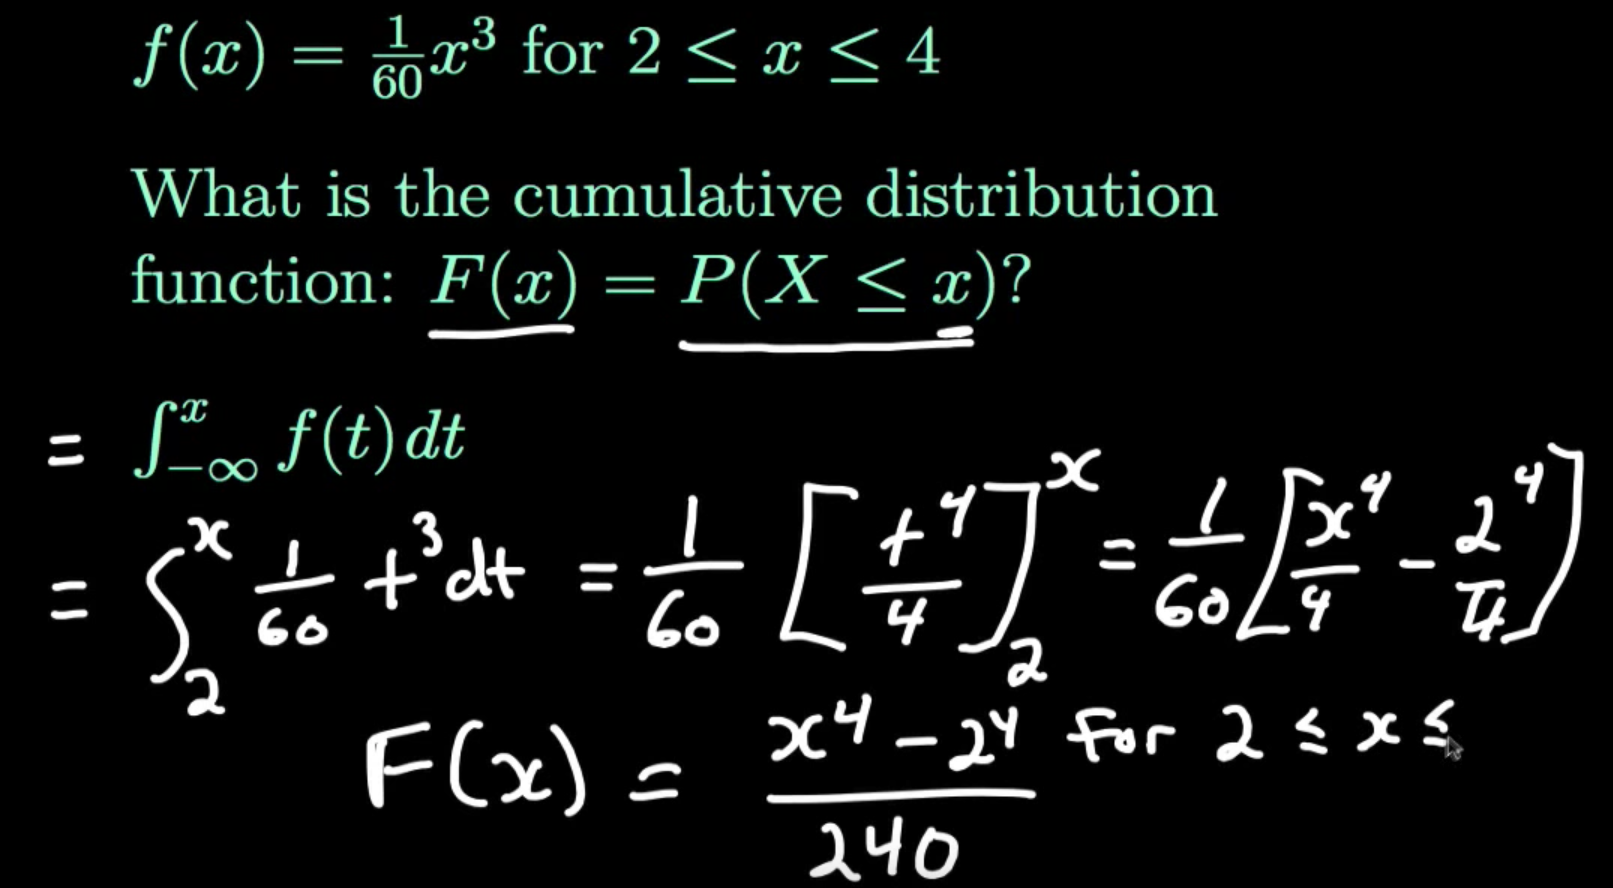 f(x) = 1/60 x³ for 2 ≤ x ≤ 4
What is the cumulative distribution
function: F(x) = P(X ≤ x)?
= ∫_{-∞}^{x} f(t) dt
= ∫_{2}^{x} 1/60 t³ dt = 1/60 [t⁴/4]_{2}^{x} = 1/60 [x⁴/4 − 2⁴/4]
F(x) = (x⁴ − 2⁴)/240 for 2 ≤ x ≤